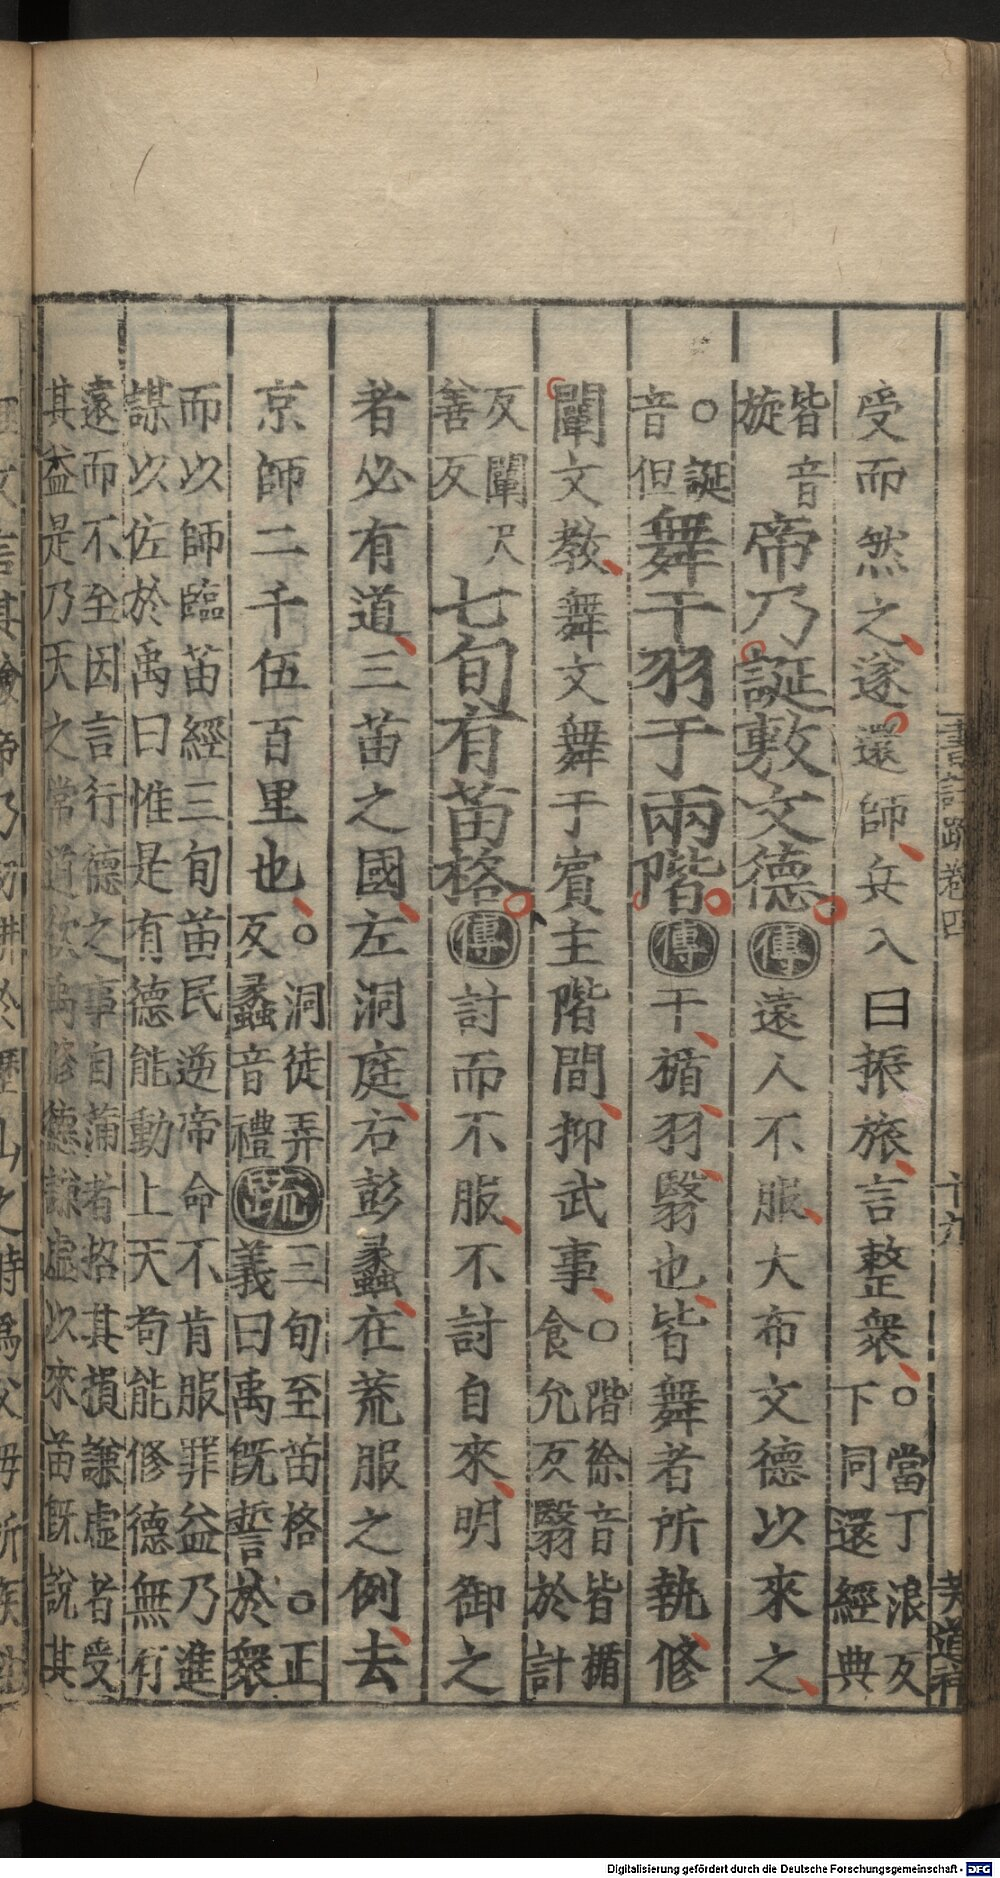 受而然之遂還師兵入曰振旅言整衆○當丁浪反下同還經典
皆音旋帝乃誕敷文德傳遠人不服大布文德以來之
○誕音但舞干羽于兩階傳干楯羽翳也皆舞者所執修
闡文教舞文舞于賓主階間抑武事○階徐音皆楯食允反翳於計
反闡尺善反七旬有苗格傳討而不服不討自來明御之
者必有道三苗之國左洞庭右彭蠡在荒服之例去
京師二千伍百里也○洞徒弄反蠡音禮疏三旬至苗格○正義曰禹既誓於衆
而以師臨苗經三旬苗民逆帝命不肯服罪益乃進謀以佐於禹曰惟是有德能動上天苟能修德無有
遠而不至因言行德之事自蒲者招其損謙虛者受其益是乃天之常道欲禹修德謙虛以來苗既說其
書註疏卷四
十六
Digitalisierung gefördert durch die Deutsche Forschungsgemeinschaft - DFG